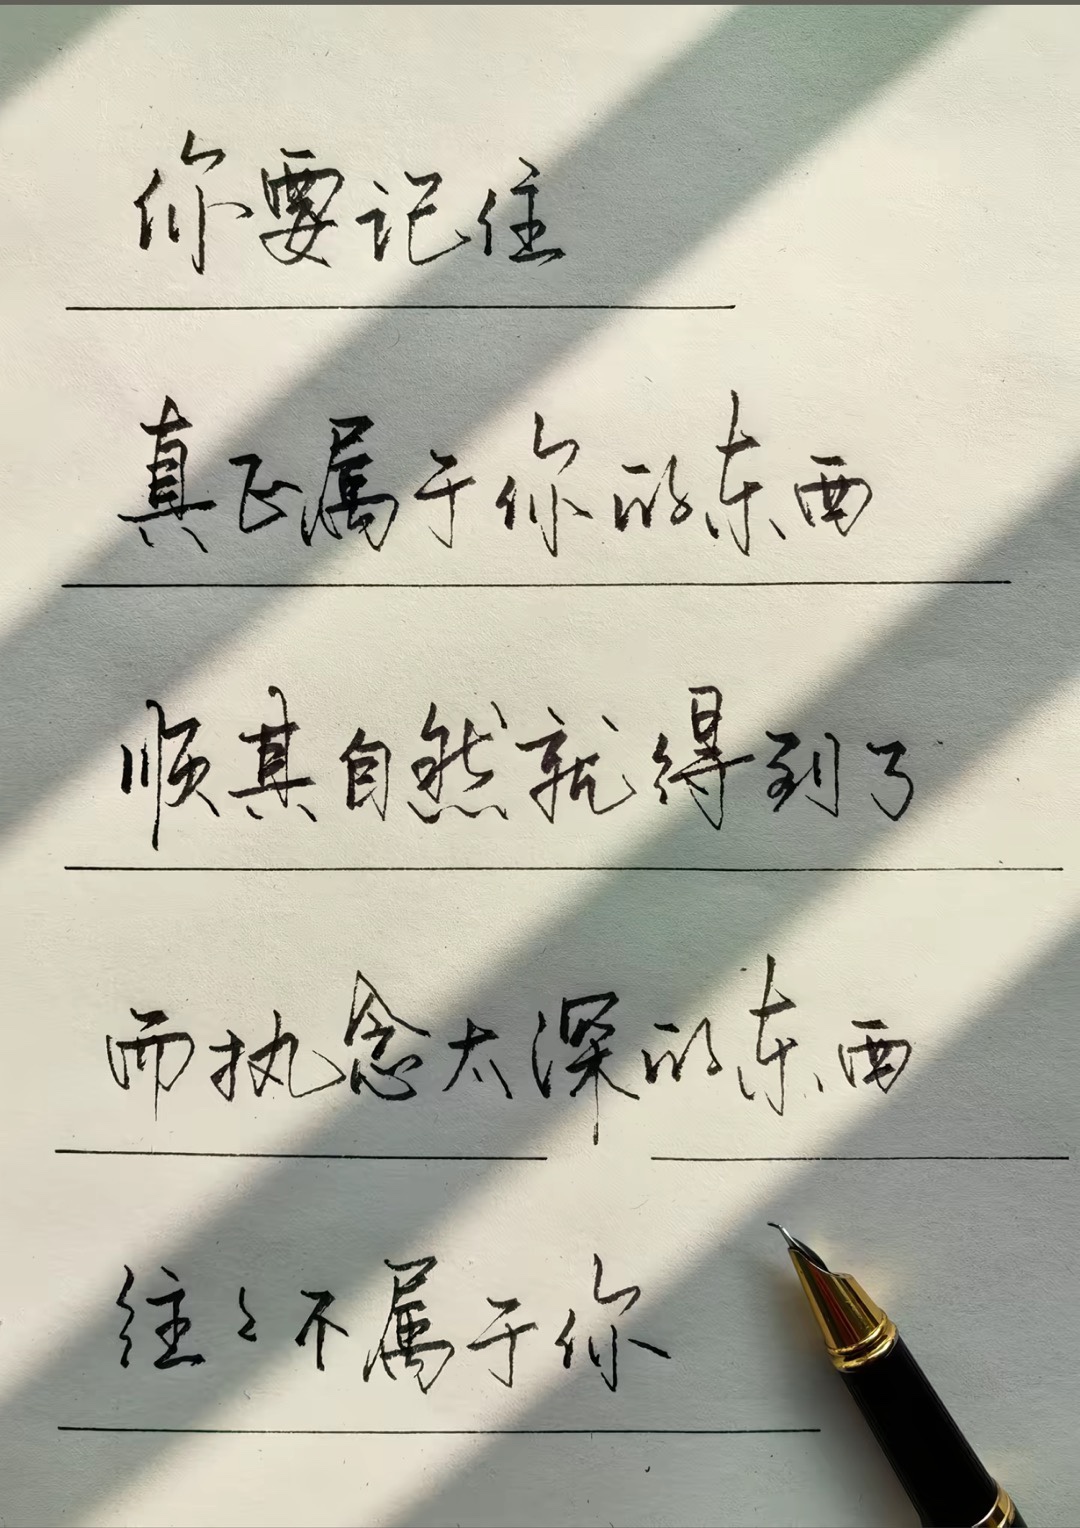 你要记住
真正属于你的东西
顺其自然就得到了
而执念太深的东西
往々不属于你